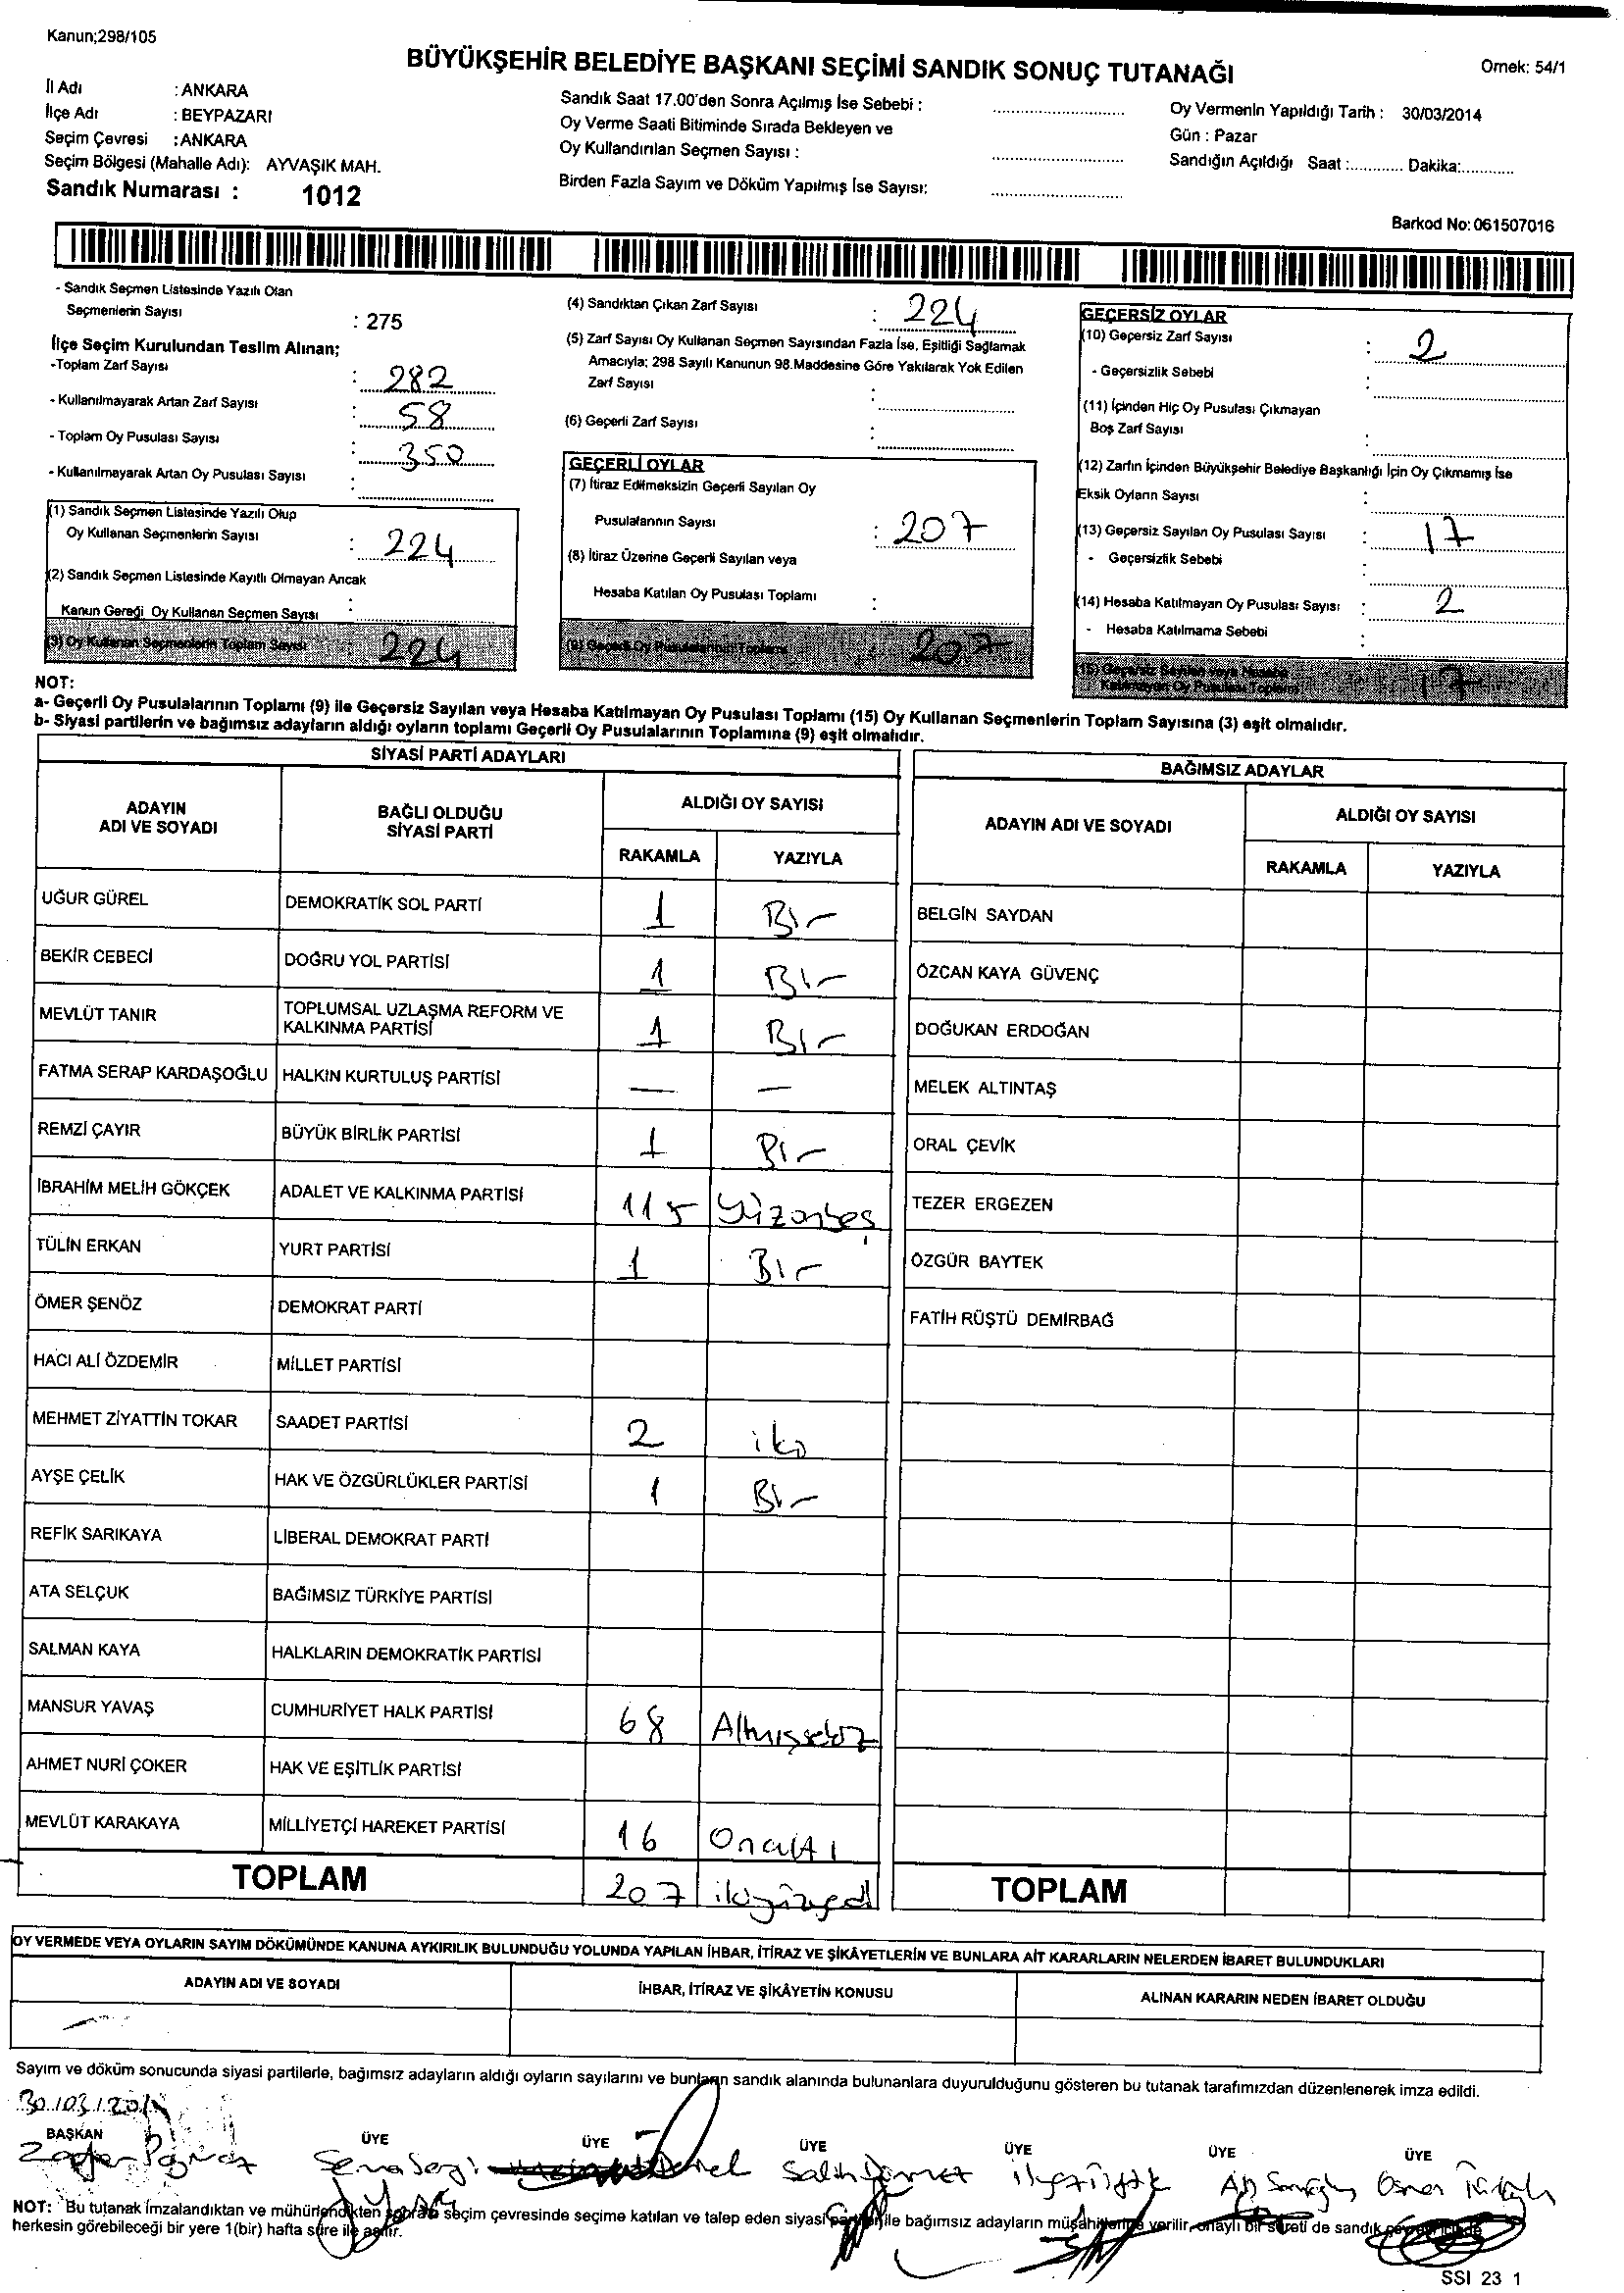 Kanun;298/105
BÜYÜKŞEHİR BELEDİYE BAŞKANI SEÇİMİ SANDIK SONUÇ TUTANAĞI
Ornek: 54/1
İl Adı : ANKARA
İlçe Adı : BEYPAZARI
Seçim Çevresi : ANKARA
Seçim Bölgesi (Mahalle Adı): AYVAŞIK MAH.
Sandık Numarası : 1012
Sandık Saat 17.00'den Sonra Açılmış İse Sebebi :
Oy Verme Saati Bitiminde Sırada Bekleyen ve
Oy Kullandırılan Seçmen Sayısı :
Birden Fazla Sayım ve Döküm Yapılmış İse Sayısı:
Oy Vermenin Yapıldığı Tarih : 30/03/2014
Gün : Pazar
Sandığın Açıldığı Saat :............ Dakika:............
Barkod No: 061507016
- Sandık Seçmen Listesinde Yazılı Olan
Seçmenlerin Sayısı : 275
İlçe Seçim Kurulundan Teslim Alınan;
-Toplam Zarf Sayısı : 282
- Kullanılmayarak Artan Zarf Sayısı : 58
- Toplam Oy Pusulası Sayısı : 350
- Kullanılmayarak Artan Oy Pusulası Sayısı :
(1) Sandık Seçmen Listesinde Yazılı Olup
Oy Kullanan Seçmenlerin Sayısı : 224
(2) Sandık Seçmen Listesinde Kayıtlı Olmayan Ancak
Kanun Gereği Oy Kullanan Seçmen Sayısı :
(3) Oy Kullanan Seçmenlerin Toplam Sayısı 224
(4) Sandıktan Çıkan Zarf Sayısı : 224
(5) Zarf Sayısı Oy Kullanan Seçmen Sayısından Fazla İse, Eşitliği Sağlamak
Amacıyla; 298 Sayılı Kanunun 98.Maddesine Göre Yakılarak Yok Edilen
Zarf Sayısı :
(6) Geçerli Zarf Sayısı :
GEÇERLİ OYLAR
(7) İtiraz Edilmeksizin Geçerli Sayılan Oy
Pusulalarının Sayısı : 207
(8) İtiraz Üzerine Geçerli Sayılan veya
Hesaba Katılan Oy Pusulası Toplamı :
(9) Geçerli Oy Pusulalarının Toplamı 207
GEÇERSİZ OYLAR
(10) Geçersiz Zarf Sayısı : 2
- Geçersizlik Sebebi :
(11) İçinden Hiç Oy Pusulası Çıkmayan
Boş Zarf Sayısı :
(12) Zarfın İçinden Büyükşehir Belediye Başkanlığı İçin Oy Çıkmamış İse
Eksik Oyların Sayısı :
(13) Geçersiz Sayılan Oy Pusulası Sayısı : 17
- Geçersizlik Sebebi :
(14) Hesaba Katılmayan Oy Pusulası Sayısı : 2
- Hesaba Katılmama Sebebi :
(15) Geçersiz Sayılan veya Hesaba
Katılmayan Oy Pusulası Toplamı 17
NOT:
a- Geçerli Oy Pusulalarının Toplamı (9) ile Geçersiz Sayılan veya Hesaba Katılmayan Oy Pusulası Toplamı (15) Oy Kullanan Seçmenlerin Toplam Sayısına (3) eşit olmalıdır.
b- Siyasi partilerin ve bağımsız adayların aldığı oyların toplamı Geçerli Oy Pusulalarının Toplamına (9) eşit olmalıdır.
SİYASİ PARTİ ADAYLARI
ADAYIN ADI VE SOYADI
BAĞLI OLDUĞU SİYASİ PARTİ
ALDIĞI OY SAYISI
RAKAMLA YAZIYLA
UĞUR GÜREL DEMOKRATİK SOL PARTİ 1 Bir
BEKİR CEBECİ DOĞRU YOL PARTİSİ 1 Bir
MEVLÜT TANIR TOPLUMSAL UZLAŞMA REFORM VE KALKINMA PARTİSİ 1 Bir
FATMA SERAP KARDAŞOĞLU HALKIN KURTULUŞ PARTİSİ — —
REMZİ ÇAYIR BÜYÜK BİRLİK PARTİSİ 1 Bir
İBRAHİM MELİH GÖKÇEK ADALET VE KALKINMA PARTİSİ 115 Yüzonbeş
TÜLİN ERKAN YURT PARTİSİ 1 Bir
ÖMER ŞENÖZ DEMOKRAT PARTİ
HACI ALİ ÖZDEMİR MİLLET PARTİSİ
MEHMET ZİYATTİN TOKAR SAADET PARTİSİ 2 iki
AYŞE ÇELİK HAK VE ÖZGÜRLÜKLER PARTİSİ 1 Bir
REFİK SARIKAYA LİBERAL DEMOKRAT PARTİ
ATA SELÇUK BAĞIMSIZ TÜRKİYE PARTİSİ
SALMAN KAYA HALKLARIN DEMOKRATİK PARTİSİ
MANSUR YAVAŞ CUMHURİYET HALK PARTİSİ 68 Altmışsekiz
AHMET NURİ ÇOKER HAK VE EŞİTLİK PARTİSİ
MEVLÜT KARAKAYA MİLLİYETÇİ HAREKET PARTİSİ 16 Onaltı
TOPLAM 207 ikiyüzyedi
BAĞIMSIZ ADAYLAR
ADAYIN ADI VE SOYADI
ALDIĞI OY SAYISI
RAKAMLA YAZIYLA
BELGİN SAYDAN
ÖZCAN KAYA GÜVENÇ
DOĞUKAN ERDOĞAN
MELEK ALTINTAŞ
ORAL ÇEVİK
TEZER ERGEZEN
ÖZGÜR BAYTEK
FATİH RÜŞTÜ DEMİRBAĞ
TOPLAM
OY VERMEDE VEYA OYLARIN SAYIM DÖKÜMÜNDE KANUNA AYKIRILIK BULUNDUĞU YOLUNDA YAPILAN İHBAR, İTİRAZ VE ŞİKÂYETLERİN VE BUNLARA AİT KARARLARIN NELERDEN İBARET BULUNDUKLARI
ADAYIN ADI VE SOYADI
İHBAR, İTİRAZ VE ŞİKÂYETİN KONUSU
ALINAN KARARIN NEDEN İBARET OLDUĞU
Sayım ve döküm sonucunda siyasi partilerle, bağımsız adayların aldığı oyların sayılarını ve bunların sandık alanında bulunanlara duyurulduğunu gösteren bu tutanak tarafımızdan düzenlenerek imza edildi.
30/03/2014
BAŞKAN ÜYE ÜYE ÜYE ÜYE ÜYE ÜYE
Sema Salih
NOT: Bu tutanak imzalandıktan ve mühürlendikten sonra seçim çevresinde seçime katılan ve talep eden siyasi partiler ile bağımsız adayların müşahitlerine verilir, onaylı bir sureti de sandık çevresi içinde
herkesin görebileceği bir yere 1(bir) hafta süre ile asılır.
SSI 23 1